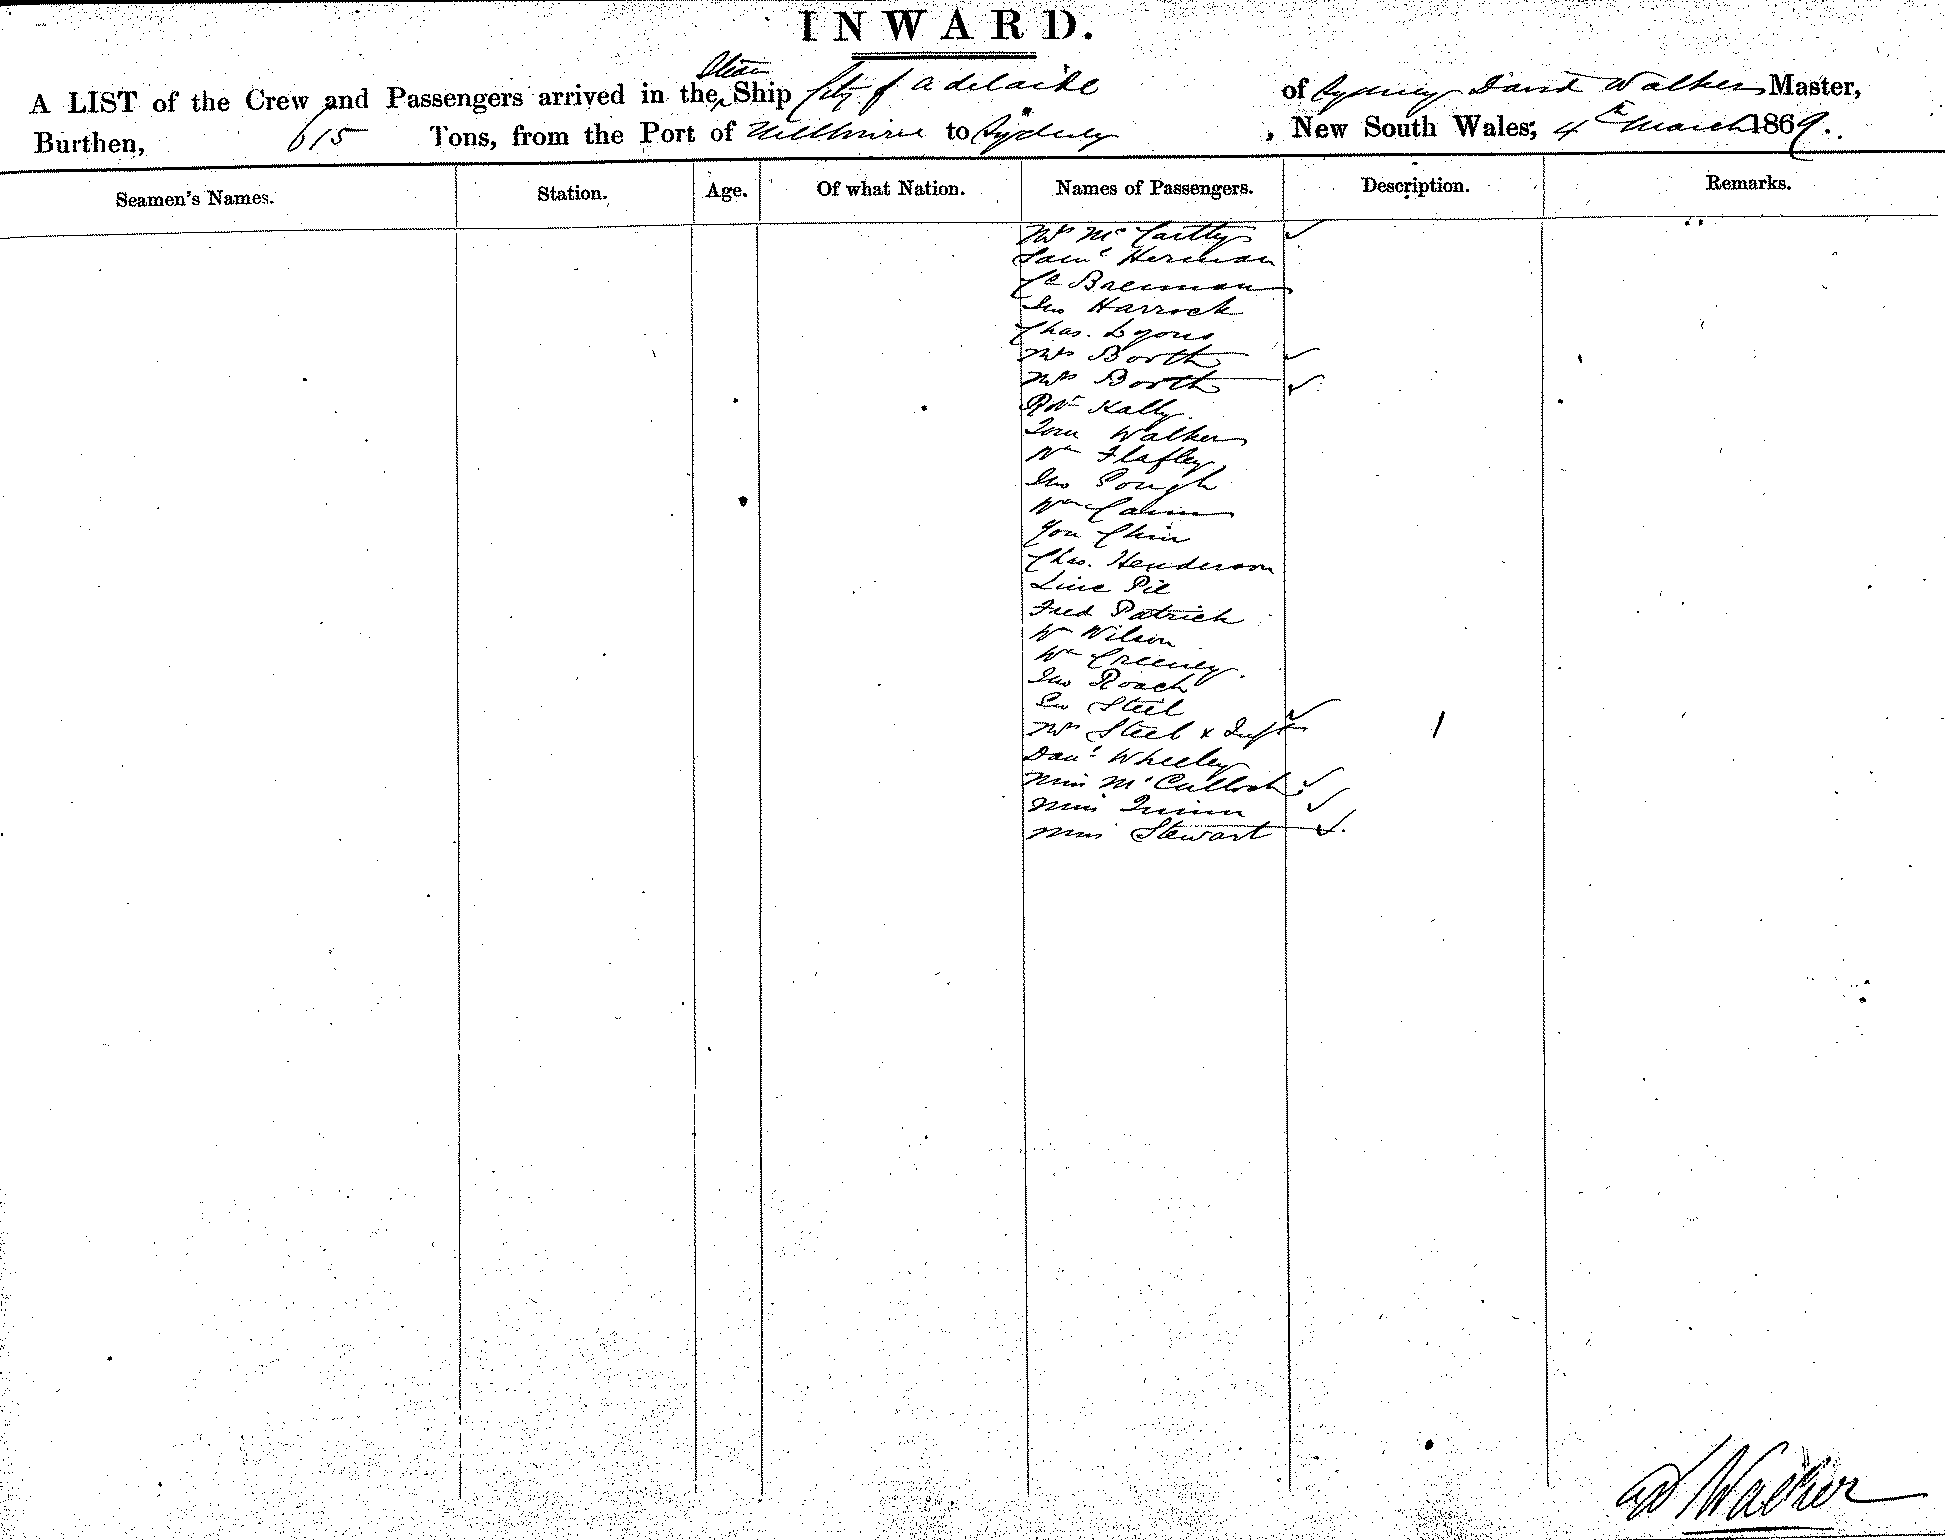 INWARD.
A LIST of the Crew and Passengers arrived in the Steam Ship City of Adelaide of Sydney David Walker Master,
Burthen, 615 Tons, from the Port of Melbourne to Sydney, New South Wales, 4th March 1869.
Seamen's Names. Station. Age. Of what Nation. Names of Passengers. Description. Remarks.
Mrs McCartty
Saml Herman
Brennan
Jno Harrock
Chas. Lyons
Mrs Borth
Mrs Borth
Kally
Tom Walker
Wm
Jno Gough
Wm
You Chin
Chas. Henderson
Line Pie
Fred Patrick
Wm Wilson
Wm Creeney
Jno Roach
Geo Steel
Mrs Steel & Inft 1
Danl Wheeley
Miss McCulloch
Miss Quinn
Miss Stewart
Walker